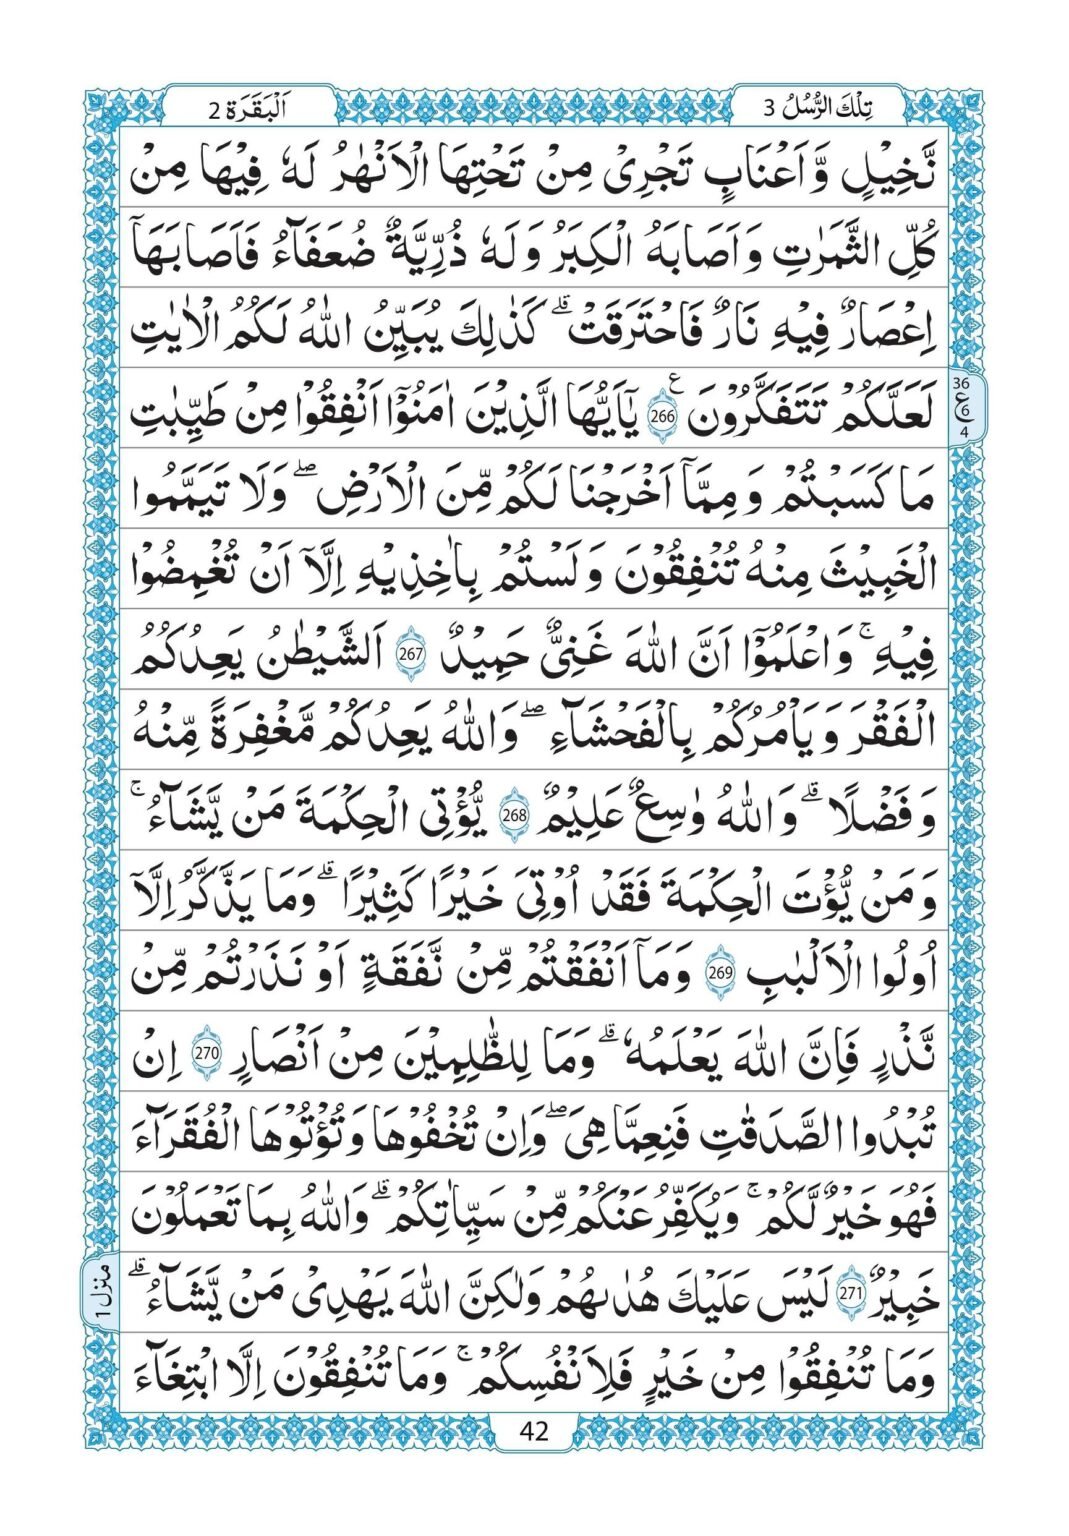 تِلْكَ الرُّسُلُ 3
اَلْبَقَرَة 2
نَّخِيْلٍ وَّاَعْنَابٍ تَجْرِیْ مِنْ تَحْتِهَا الْاَنْهٰرُ لَهٗ فِيْهَا مِنْ
كُلِّ الثَّمَرٰتِ وَاَصَابَهُ الْكِبَرُ وَلَهٗ ذُرِّيَّةٌ ضُعَفَآءُ فَاَصَابَهَاۤ
اِعْصَارٌ فِيْهِ نَارٌ فَاحْتَرَقَتْ ؕ كَذٰلِكَ يُبَيِّنُ اللّٰهُ لَكُمُ الْاٰيٰتِ
لَعَلَّكُمْ تَتَفَكَّرُوْنَ ع 266 يٰۤاَيُّهَا الَّذِيْنَ اٰمَنُوْۤا اَنْفِقُوْا مِنْ طَيِّبٰتِ
36
ع
6
4
مَا كَسَبْتُمْ وَ مِمَّاۤ اَخْرَجْنَا لَكُمْ مِّنَ الْاَرْضِ ۖ وَلَا تَيَمَّمُوا
الْخَبِيْثَ مِنْهُ تُنْفِقُوْنَ وَلَسْتُمْ بِاٰخِذِيْهِ اِلَّاۤ اَنْ تُغْمِضُوْا
فِيْهِ ۚ وَاعْلَمُوْۤا اَنَّ اللّٰهَ غَنِیٌّ حَمِيْدٌ 267 اَلشَّيْطٰنُ يَعِدُكُمُ
الْفَقْرَ وَيَاْمُرُكُمْ بِالْفَحْشَآءِ ۖ وَاللّٰهُ يَعِدُكُمْ مَّغْفِرَةً مِّنْهُ
وَفَضْلًا ۗ وَاللّٰهُ وٰسِعٌ عَلِيْمٌ 268 يُّؤْتِی الْحِكْمَةَ مَنْ يَّشَآءُ ۚ
وَمَنْ يُّؤْتَ الْحِكْمَةَ فَقَدْ اُوْتِیَ خَيْرًا كَثِيْرًا ۗ وَمَا يَذَّكَّرُ اِلَّاۤ
اُولُوا الْاَلْبٰبِ 269 وَمَاۤ اَنْفَقْتُمْ مِّنْ نَّفَقَةٍ اَوْ نَذَرْتُمْ مِّنْ
نَّذْرٍ فَاِنَّ اللّٰهَ يَعْلَمُهٗ ۗ وَمَا لِلظّٰلِمِيْنَ مِنْ اَنْصَارٍ 270 اِنْ
تُبْدُوا الصَّدَقٰتِ فَنِعِمَّا هِیَ ۖ وَاِنْ تُخْفُوْهَا وَتُؤْتُوْهَا الْفُقَرَآءَ
فَهُوَ خَيْرٌ لَّكُمْ ۚ وَيُكَفِّرُ عَنْكُمْ مِّنْ سَيِّاٰتِكُمْ ۗ وَاللّٰهُ بِمَا تَعْمَلُوْنَ
خَبِيْرٌ 271 لَيْسَ عَلَيْكَ هُدٰىهُمْ وَلٰكِنَّ اللّٰهَ يَهْدِیْ مَنْ يَّشَآءُ ۗ
منزل 1
وَمَا تُنْفِقُوْا مِنْ خَيْرٍ فَلِاَنْفُسِكُمْ ۚ وَمَا تُنْفِقُوْنَ اِلَّا ابْتِغَآءَ
42